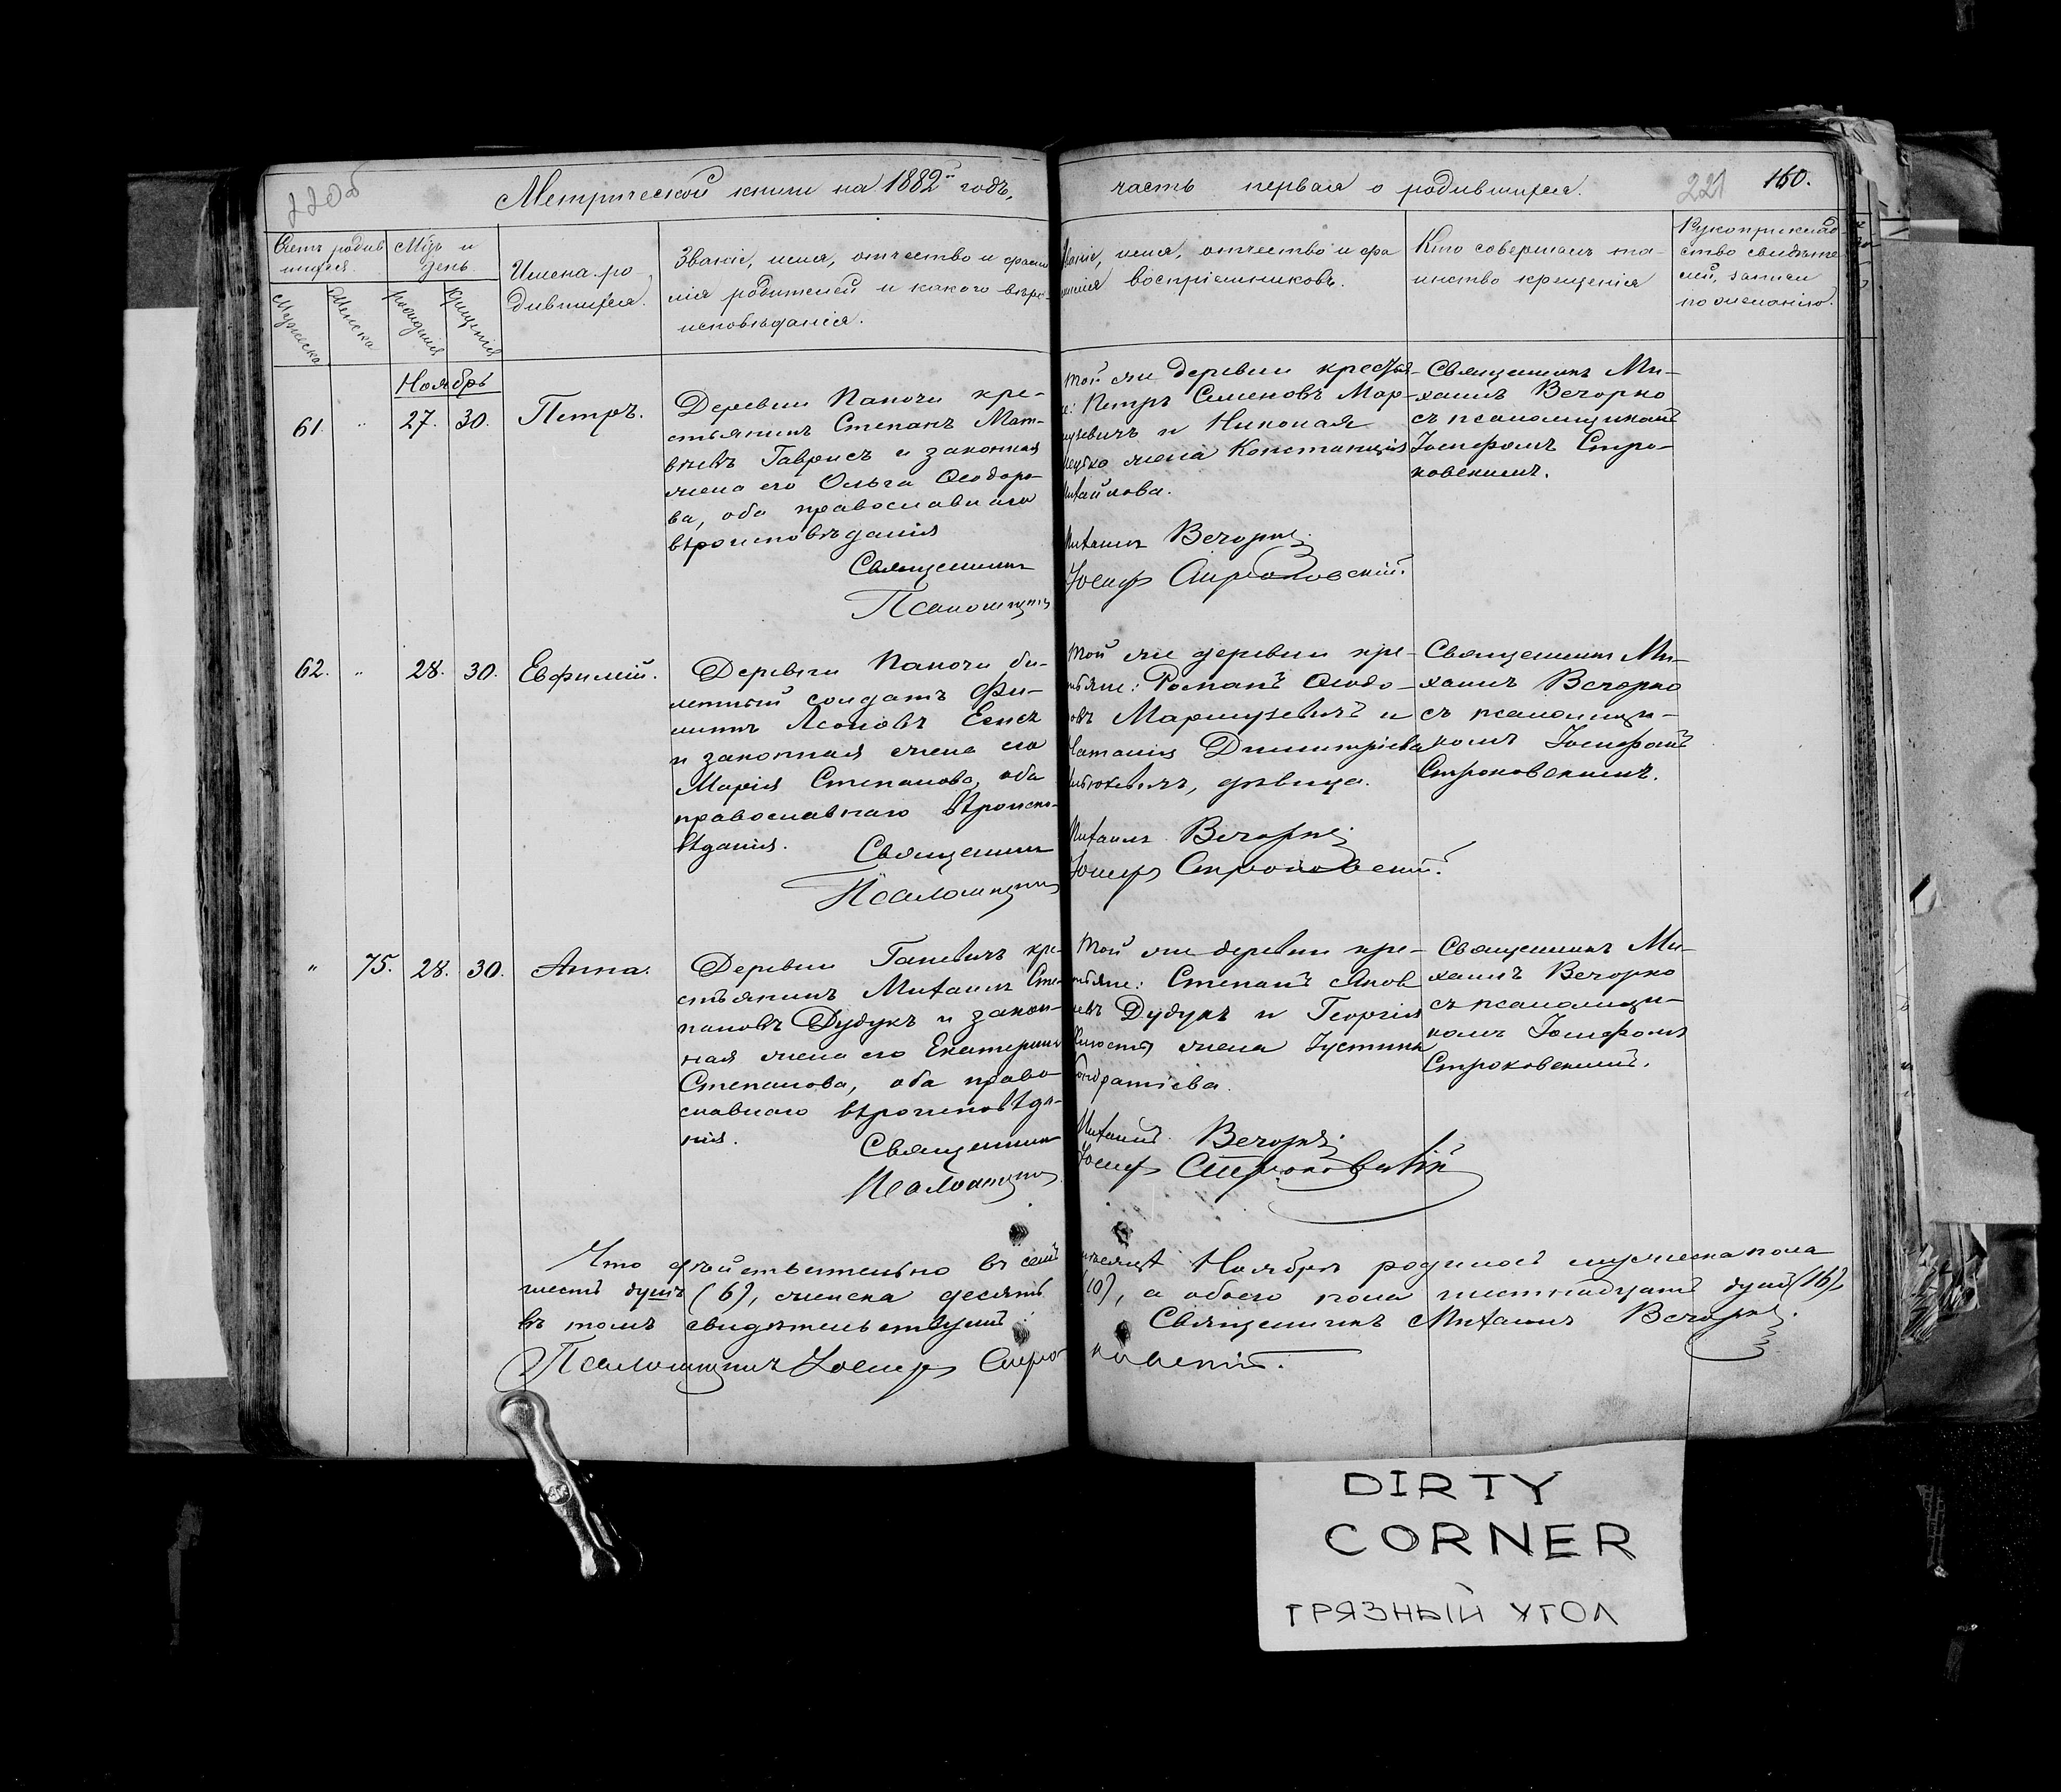 220об
Метрической книги на 1882й годъ,
часть первая о родившихся.
221
160.
Счетъ родив
шихся.
Мцъ и
день
Имена ро
дившихся.
Званіе, имя, отчество и фами
лія родителей и какого вѣро-
исповѣданія.
Мужеска
Женска
рожденія
крещенія
Званіе, имя, отчество и фа
милія воспріемниковъ.
Кто совершалъ та-
инство крещенія
Рукоприклад-
ство свидѣте
лей, записи
по желанію.
Ноябрь
61. " 27. 30. Петръ.
Деревни Папочи кре-
стьянинъ Степанъ Мат-
вѣевъ Гаврисъ и законная
жена его Ольга Ѳеодоро-
ва, оба православнаго
вѣроисповѣданія
Священникъ
Псаломщикъ
Той же деревни крестья-
Петръ Семеновъ Мар-
цузевичъ и Николая
жена Констанція
Михайлова.
Михаилъ Вечорко
Іосифъ Строковскій.
Священникъ Ми-
хаилъ Вечорко
съ псаломщикомъ
Іосифомъ Стро-
ковскимъ.
62. " 28. 30. Евфимій.
Деревни Папочи би-
летный солдатъ Фи-
липпъ Леоновъ
и законная жена его
Марія Степанова, оба
православнаго вѣроиспо-
вѣданія.
Священникъ
Псаломщикъ
Той же деревни кре-
стьяне: Романъ Ѳеодо-
ровъ Марцузевичъ и
Наталія Димитріева
дѣвица.
Михаилъ Вечорко
Іосифъ Строковскій.
Священникъ Ми-
хаилъ Вечорко
съ псаломщи-
комъ Іосифомъ
Строковскимъ.
" 75. 28. 30. Анна.
Деревни Ганевичъ кре-
стьянинъ Михаилъ Сте-
пановъ Дудукъ и закон-
ная жена его Екатерина
Степанова, оба право-
славнаго вѣроисповѣда-
нія.
Священникъ
Псаломщикъ
Той же деревни кре-
стьяне: Степанъ Яков
левъ Дудукъ и Георгія
жена Іустина
Кондратіева.
Михаилъ Вечорко
Іосифъ Строковскій
Священникъ Ми-
хаилъ Вечорко
съ псаломщи-
комъ Іосифомъ
Строковскимъ.
Что дѣйствительно въ семъ мѣсяцѣ Ноябрѣ родилось мужеска пола
шесть душъ (6), женска десять (10), а обоего пола шестнадцать душъ (16),
въ томъ свидѣтельствуемъ: Священникъ Михаилъ Вечорко.
Псаломщикъ Іосифъ Строковскій.
DIRTY
CORNER
ГРЯЗНЫЙ УГОЛ